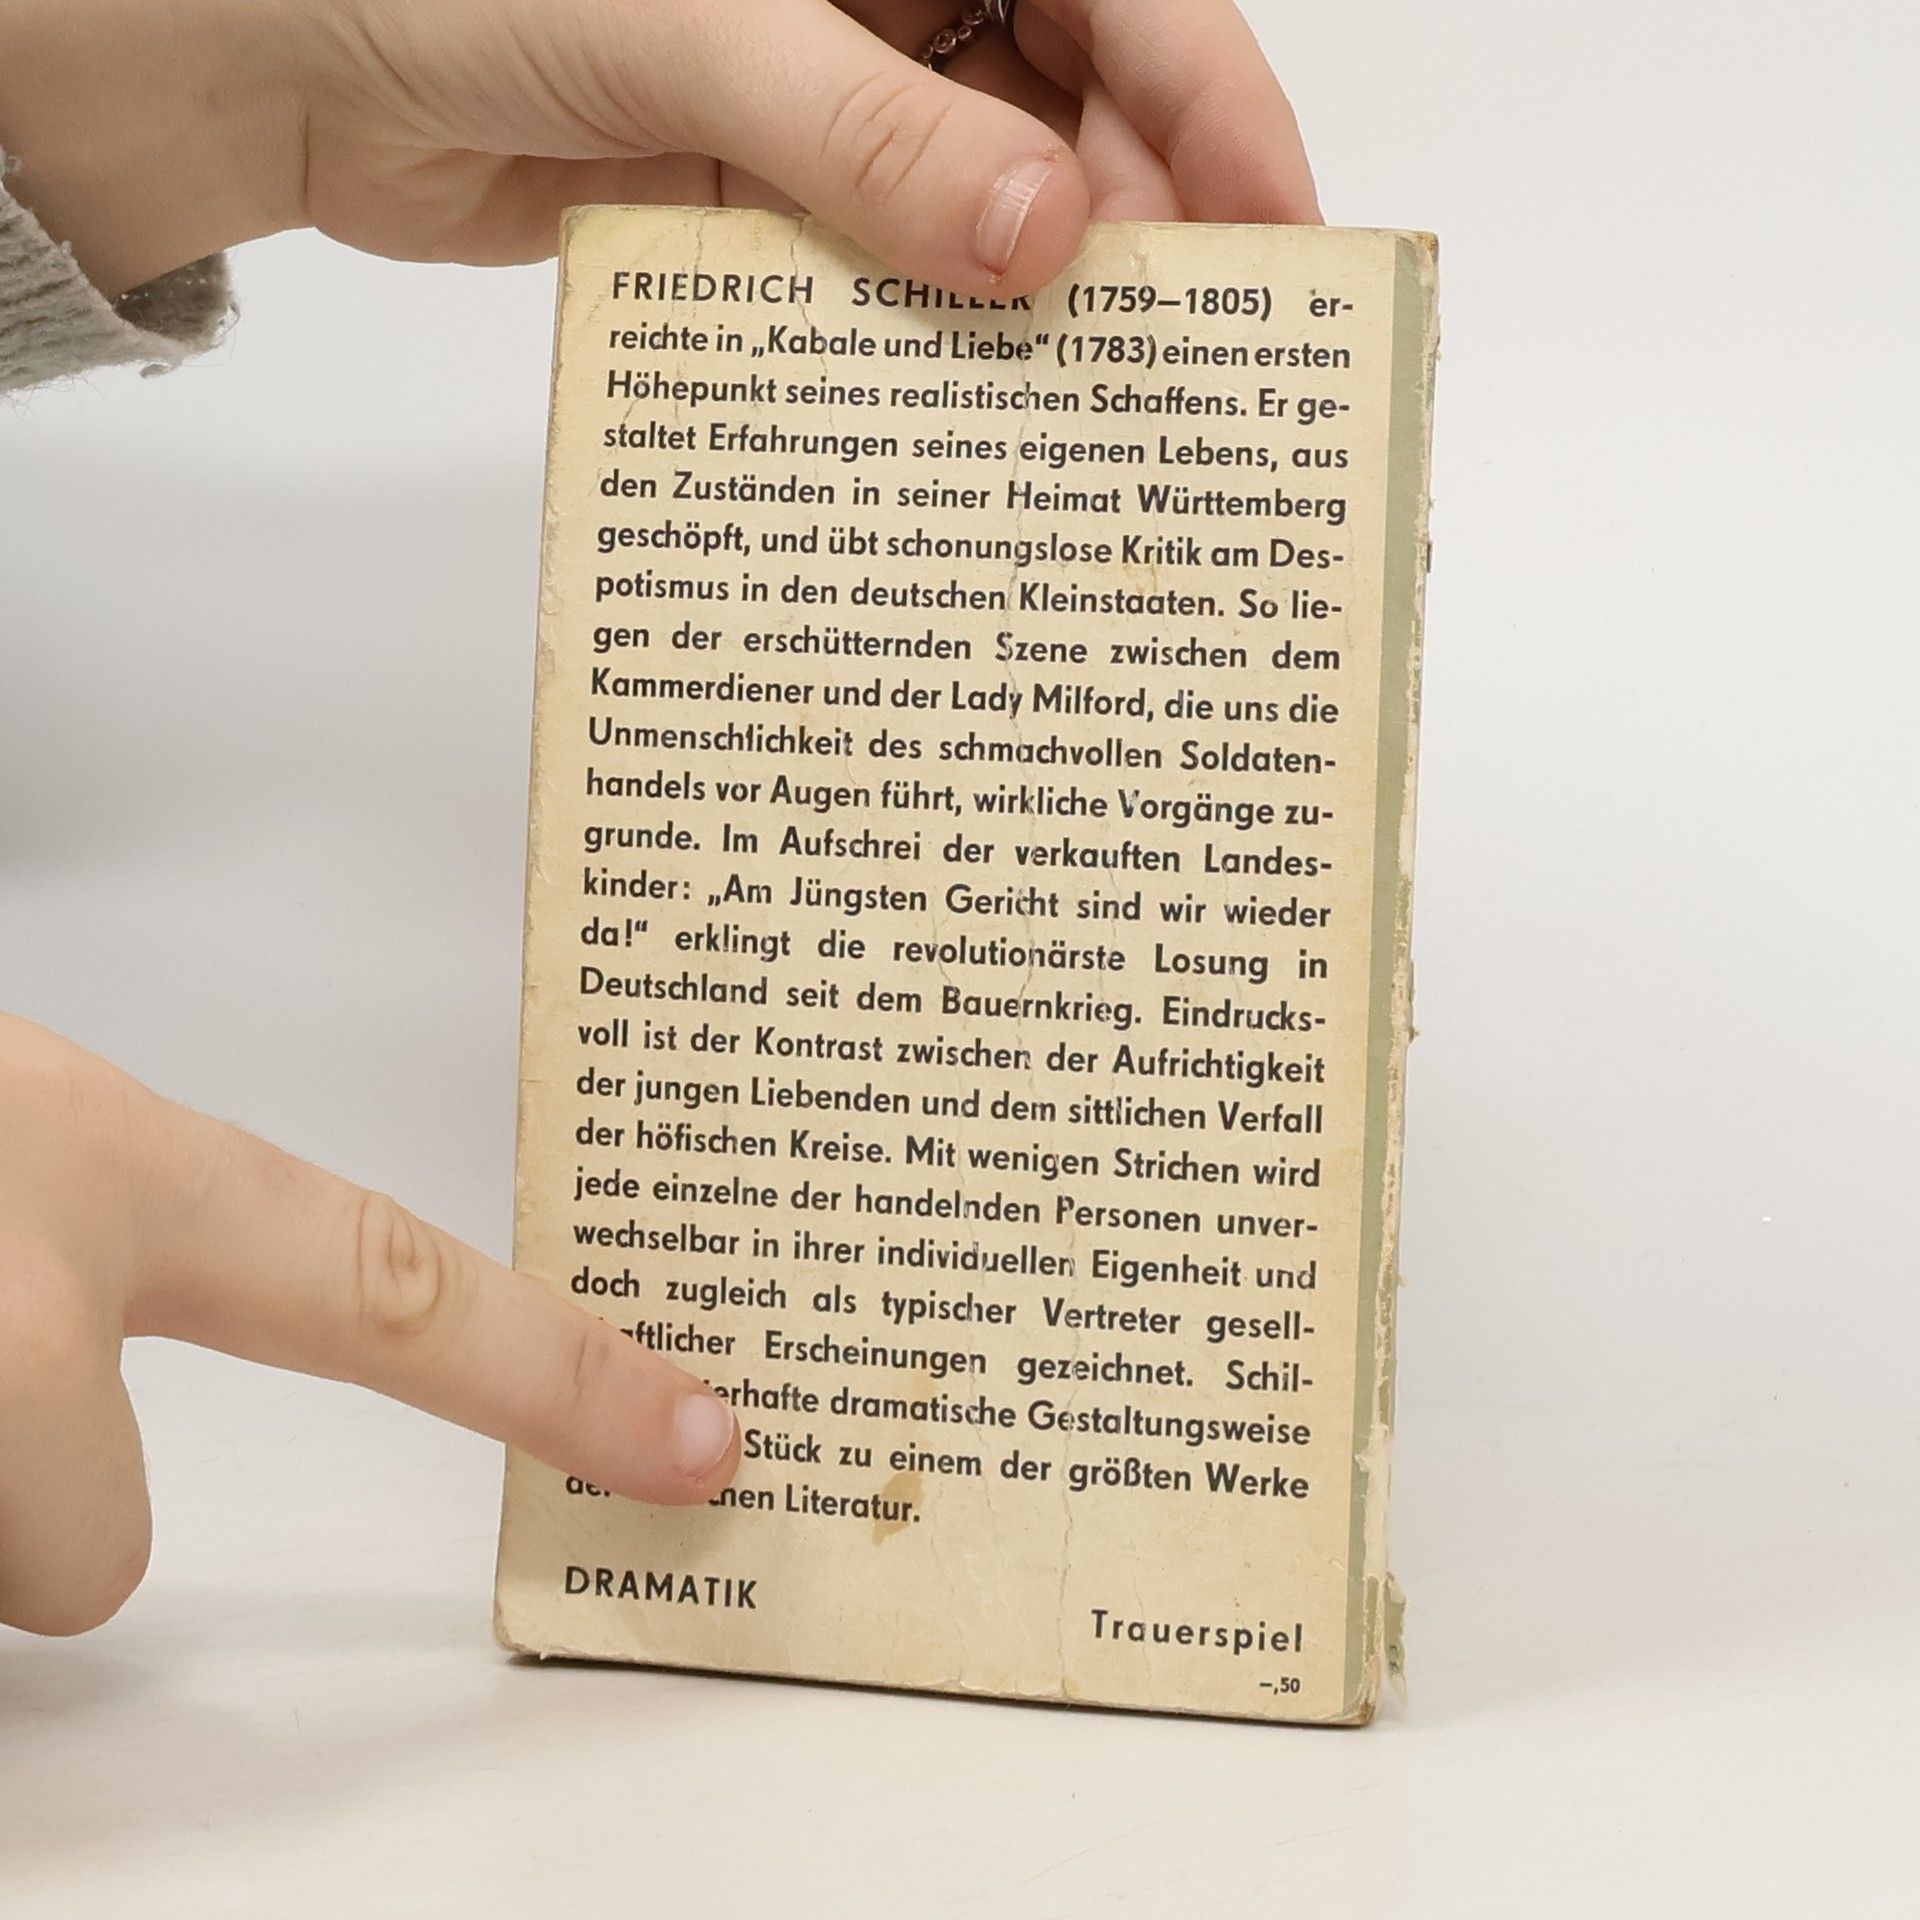 FRIEDRICH SCHILLER (1759–1805) er-
reichte in „Kabale und Liebe“ (1783) einen ersten
Höhepunkt seines realistischen Schaffens. Er ge-
staltet Erfahrungen seines eigenen Lebens, aus
den Zuständen in seiner Heimat Württemberg
geschöpft, und übt schonungslose Kritik am Des-
potismus in den deutschen Kleinstaaten. So lie-
gen der erschütternden Szene zwischen dem
Kammerdiener und der Lady Milford, die uns die
Unmenschlichkeit des schmachvollen Soldaten-
handels vor Augen führt, wirkliche Vorgänge zu-
grunde. Im Aufschrei der verkauften Landes-
kinder: „Am Jüngsten Gericht sind wir wieder
da!“ erklingt die revolutionärste Losung in
Deutschland seit dem Bauernkrieg. Eindrucks-
voll ist der Kontrast zwischen der Aufrichtigkeit
der jungen Liebenden und dem sittlichen Verfall
der höfischen Kreise. Mit wenigen Strichen wird
jede einzelne der handelnden Personen unver-
wechselbar in ihrer individuellen Eigenheit und
doch zugleich als typischer Vertreter gesell-
Erscheinungen gezeichnet. Schil-
dramatische Gestaltungsweise
Stück zu einem der größten Werke
Literatur.
DRAMATIK
Trauerspiel
–,50